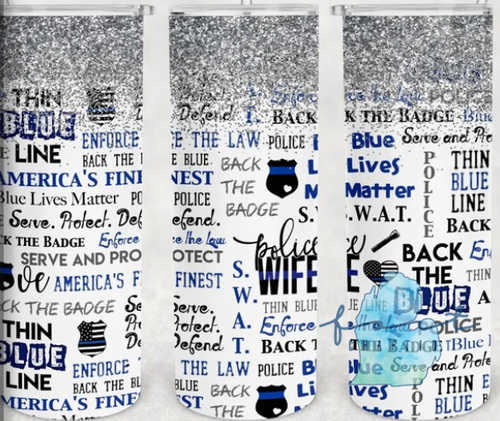 THIN
BLUE
LINE
ENFORCE
BACK THE B
AMERICA'S FINE
Blue Lives Matter PO
Serve. Protect. De
CK THE BADGE Enforce
SERVE AND PRO
ove AMERICA'S F
CK THE BADGE Serve.
THIN Protect.
BLUE Defend
LINE ENFORCE
BACK THE B
MERICA'S FINE
Defend
E THE LAW POLICE
E BLUE BACK
NEST THE
POLICE BADGE
efend.
ce the law
OTECT
FINEST
S.W.A.T.
BACK THE B
S.W.A.T.
police
WIFE
THIN BLUE
Serve. Enforce
Protect. BACK T
Defend
THE LAW POLICE B
BLUE BACK
NEST THE
Enforce the Law
BACK THE BADGE Blue
Blue Serve and Pro
Lives
Matter
POLICE
THIN
BLUE
LINE
BACK
W.A.T.
ce
IFE
BACK
THE
BLUE
POLICE
THE BADGE Blue L
Blue Serve and Prote
THIN
BLUE
LINE